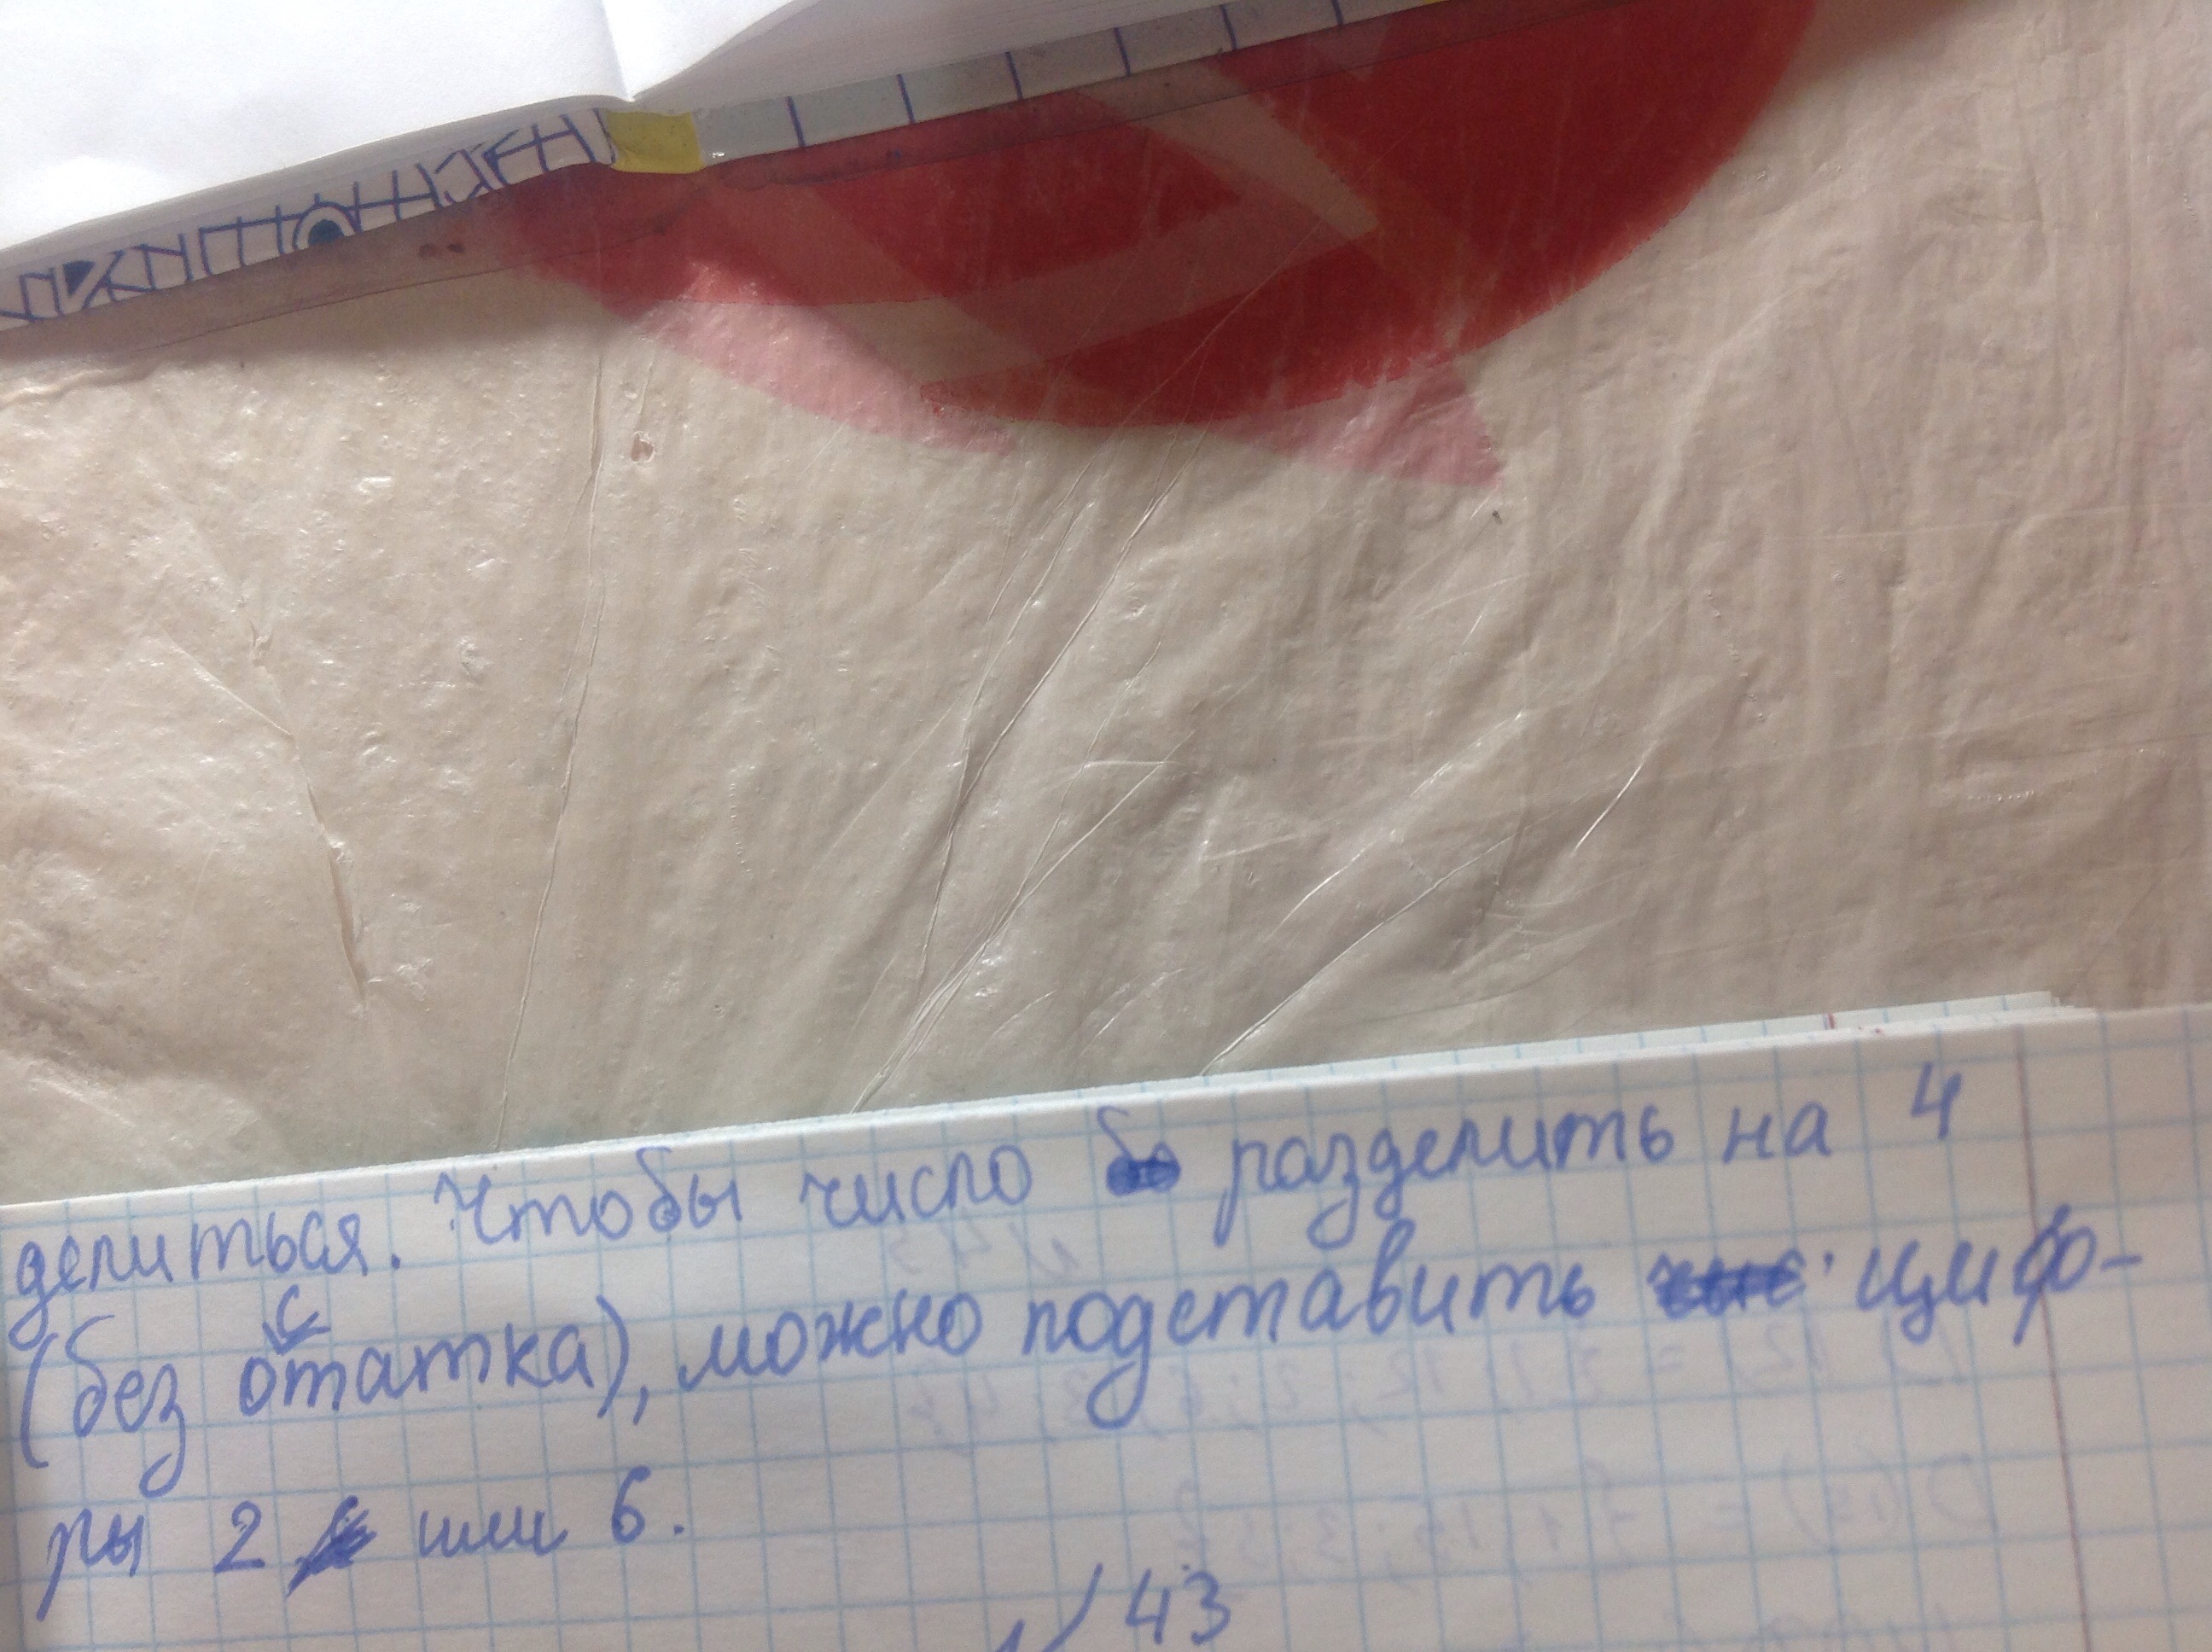 делиться. Чтобы число разделить на 4
(без остатка), можно подставить циф-
ры 2 или 6.
43